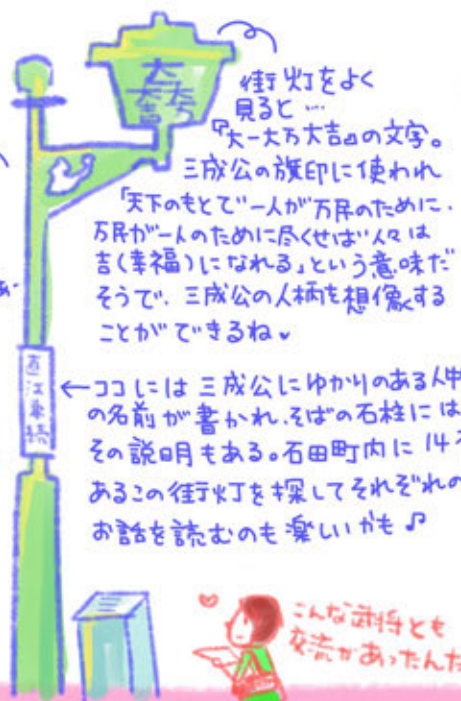 大一大万大吉
街灯をよく
見ると…
『大一大万大吉』の文字。
三成公の旗印に使われ
「天下のもとで一人が万民のために、
万民が一人のために尽くせば人々は
吉(幸福)になれる」という意味だ
そうで、三成公の人柄を想像する
ことができるね
直江兼続
←ココには三成公にゆかりのある人
の名前が書かれ、そばの石柱には
その説明もある。石田町内に14
あるこの街灯を探してそれぞれの
お話を読むのも楽しいかも♪
こんな武将とも
交流があったんだ